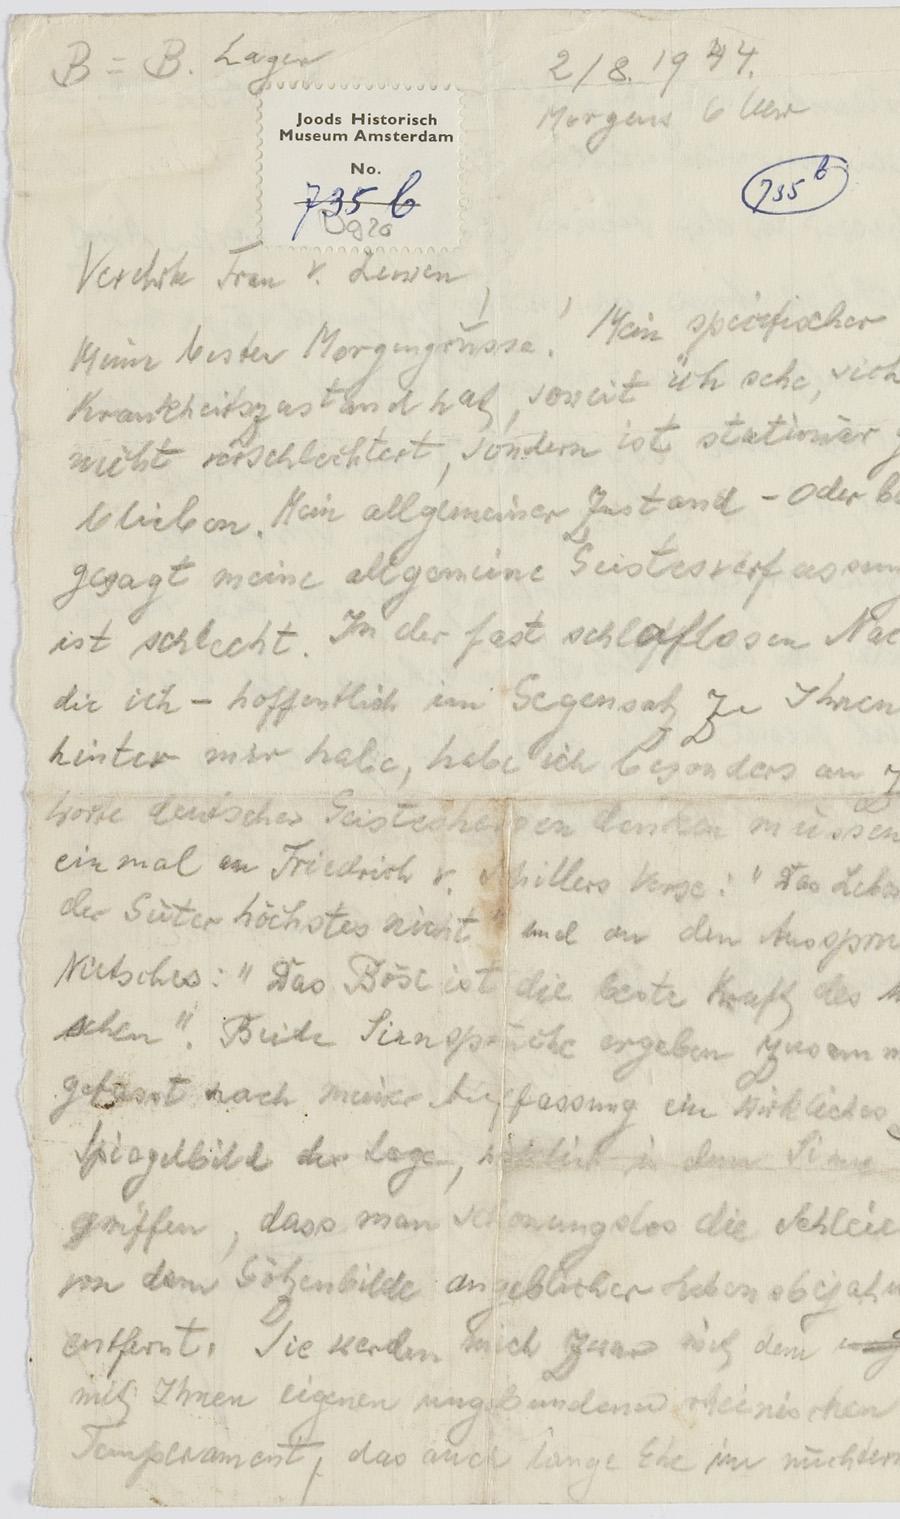 B = B. Lager
2/8. 1944.
Morgens 6 Uhr
Joods Historisch
Museum Amsterdam
No.
735 b
Do920
735 b
Verehrte Frau v. Leuwen,
Meine besten Morgengrüsse! Mein spezifischer
Krankheitszustand hat, soweit ich sehe, sich
nicht verschlechtert, sondern ist stationär g
blieben. Mein allgemeiner Zustand – oder be
gesagt meine allgemeine Geistesverfassun
ist schlecht. In der fast schlaflosen Nac
die ich – hoffentlich im Gegensatz zu Ihnen
hinter mir habe, habe ich besonders an z
Worte deutscher Geistesheroen denken müssen
einmal an Friedrich v. Schillers Verse: "Das Leben
der Güter höchstes nicht" und an den Ausspru
Nietsches: "Das Böse ist die beste Kraft des M
schen". Beide Sinnsprüche ergeben zusamm
gefasst nach meiner Auffassung ein wirkliches
Spiegelbild der Lage, in dem Sinne
griffen, dass man schonungslos die Schleie
von dem Götzenbilde angeblicher Lebensbejahu
entfernt. Sie werden mich zwar mit dem
mit Ihnen eigenen ungebundenen rheinischen
Temperament, das auch lange Ehe im nüchtern